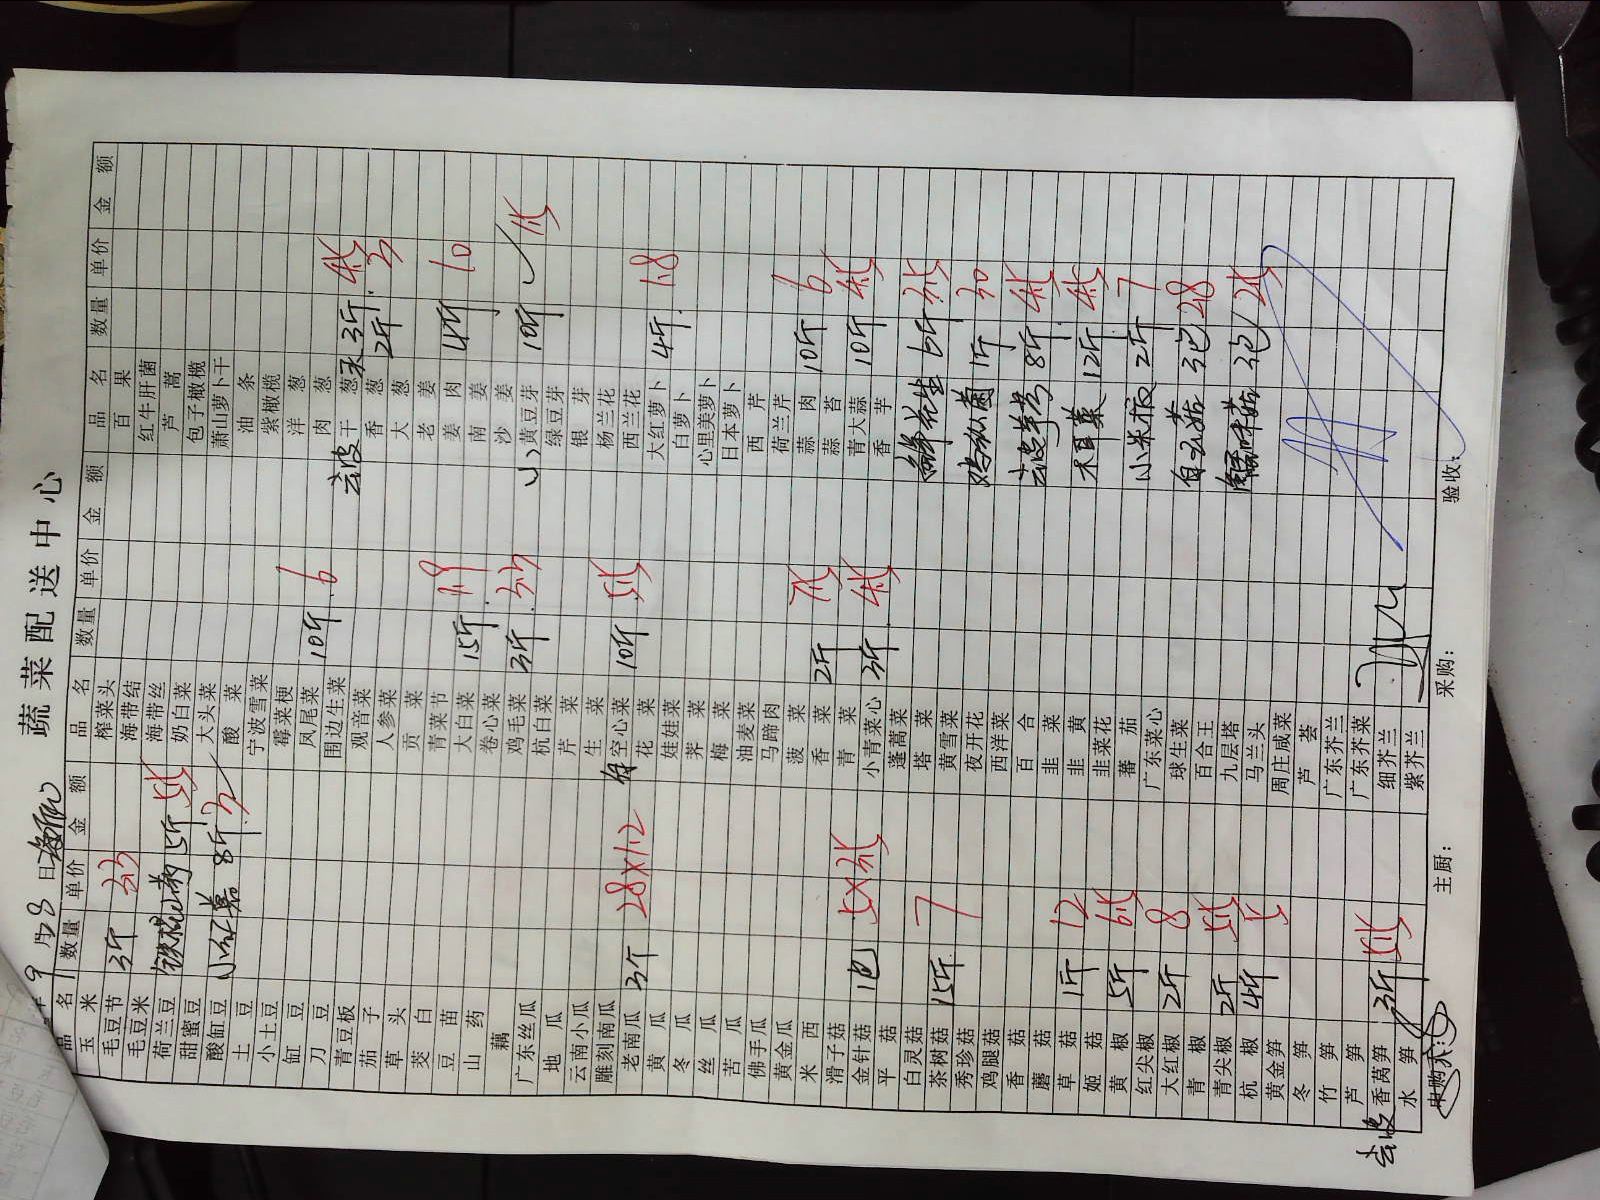 蔬菜配送中心
9月28日
品名 数量 单价 金额 品名 数量 单价 金额 品名 数量 单价 金额
玉米 榨菜头 百果
毛豆节 3斤 海带结 红牛肝菌
毛豆米 海带丝 芦蒿
荷兰豆 5斤 奶白菜 包子橄榄
甜蜜豆 大头菜 萧山萝卜干
酸缸豆 8斤 酸菜 油条
土豆 宁波雪菜 紫橄榄
小土豆 霉菜梗 洋葱
缸豆 凤尾菜 10斤 6 肉葱
刀豆 围边生菜 去皮干葱 3斤
青豆板 观音菜 香葱 2斤
茄子 人参菜 大葱
草头 贡菜 老姜
茭白 青菜节 姜肉 4斤 10
豆苗 大白菜 15斤 1.9 南姜
山药 卷心菜 沙姜
藕 鸡毛菜 3斤 小黄豆芽 10斤
广东丝瓜 杭白菜 绿豆芽
地瓜 芹菜 银芽
云南小瓜 生菜 杨兰花
雕刻南瓜 空心菜 10斤 西兰花
老南瓜 3个 28×1.2 花菜 大红萝卜 4斤 1.8
黄瓜 娃娃菜 白萝卜
冬瓜 荠菜 心里美萝卜
丝瓜 梅菜 日本萝卜
苦瓜 油麦菜 西芹
佛手瓜 马蹄肉 荷兰芹
黄金瓜 菠菜 蒜肉 10斤 6
米西 香菜 2斤 蒜苔
滑子菇 青菜 青大蒜 10斤
金针菇 1包 小青菜心 3斤 香芋
平菇 蓬蒿菜
白灵菇 塔菜 鲜花生 6斤
茶树菇 15斤 7 黄雪菜
秀珍菇 夜开花 鸡枞菌 1斤 30
鸡腿菇 西洋菜
香菇 百合 去皮芋艿 8斤
蘑菇 韭菜
草菇 1斤 12 韭黄 木耳菜 12斤
姬菇 5斤 韭菜花
黄椒 蕃茄 小米椒 2斤 7
红尖椒 广东菜心
大红椒 2斤 8 球生菜 白玉菇 3包 28
青椒 百合王
青尖椒 2斤 九层塔 蟹味菇 3包
杭椒 4斤 马兰头
黄金笋 周庄咸菜
冬笋 芦荟
竹笋 广东芥兰
芦笋 广东芥菜
去皮香莴笋 3斤 细芥兰
水笋 紫芥兰
主厨: 采购: 验收: